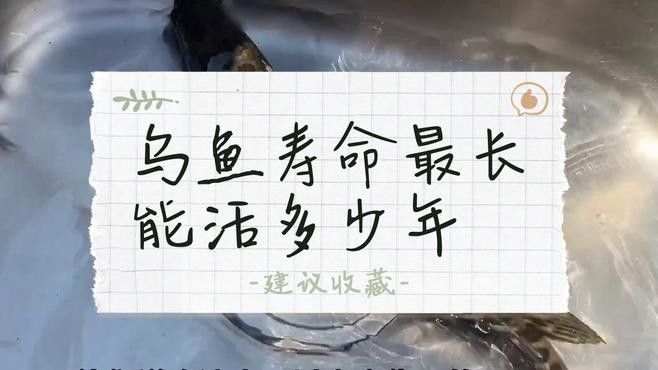 乌鱼寿命最长
能活多少年
-建议收藏-